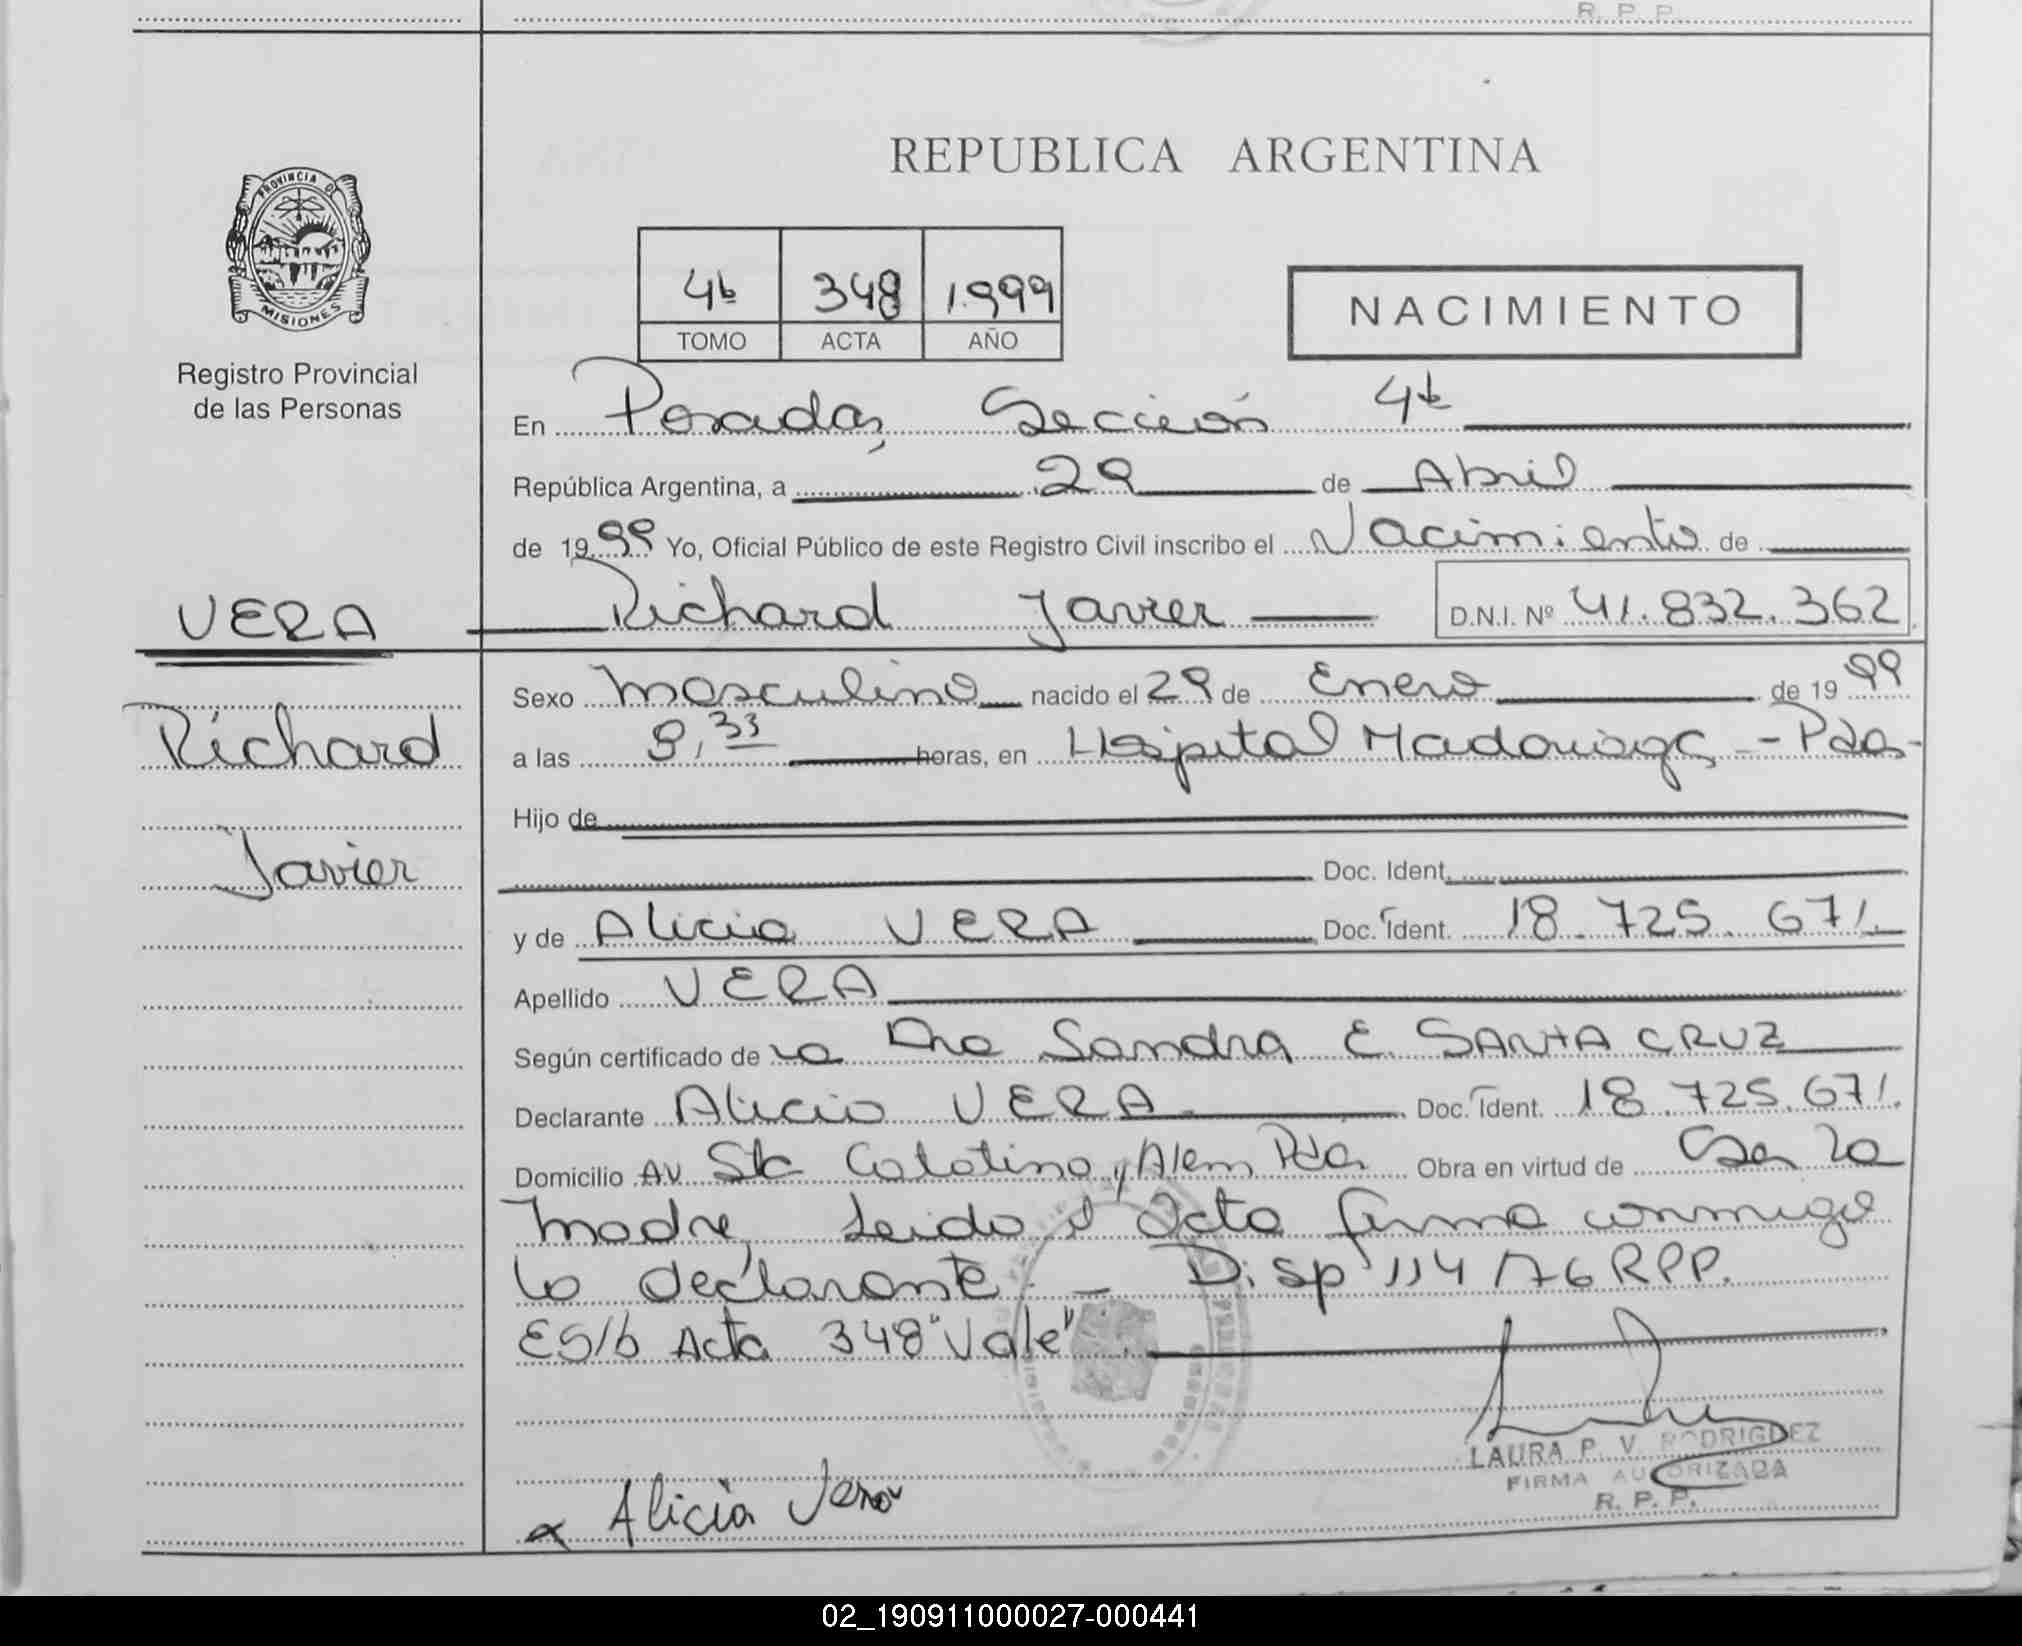 R. P. P.
PROVINCIA DE
MISIONES
Registro Provincial
de las Personas
REPUBLICA ARGENTINA
4b 348 1.999
TOMO ACTA AÑO
NACIMIENTO
En Posadas, Sección 4b
República Argentina, a 29 de Abril
de 19 99 Yo, Oficial Público de este Registro Civil inscribo el Nacimiento de
VERA
Richard Javier D.N.I. Nº 41.832.362
Richard
Javier
Sexo Masculino nacido el 29 de Enero de 19 99
a las 9,33 horas, en Hospital Madariaga - Pdas-
Hijo de
Doc. Ident.
y de Alicia VERA Doc. Ident. 18.725.671.
Apellido VERA
Según certificado de la Dra Sandra E. SANTA CRUZ
Declarante Alicia VERA Doc. Ident. 18.725.671.
Domicilio AV Sta Catalina y Alem Pdas Obra en virtud de Ser la
madre, Leido el acta firma conmigo
la declarante. - Disp 114/76 RPP.
ES/b Acta 348 "Vale"
LAURA P. V. RODRIGUEZ
FIRMA AUTORIZADA
R. P. P.
x Alicia Vera
02_190911000027-000441